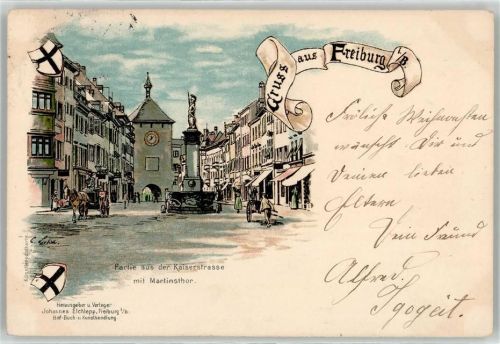 Gruss aus Freiburg i/B
Fröhliche Weihnachten
wünscht Dir und
Deinen lieben
Eltern,
Dein Freund
Alfred.
Partie aus der Kaiserstrasse
mit Martinsthor.
Herausgeber u. Verleger
Johannes Elchlepp, Freiburg i/B.
Hof-Buch- u. Kunsthandlung